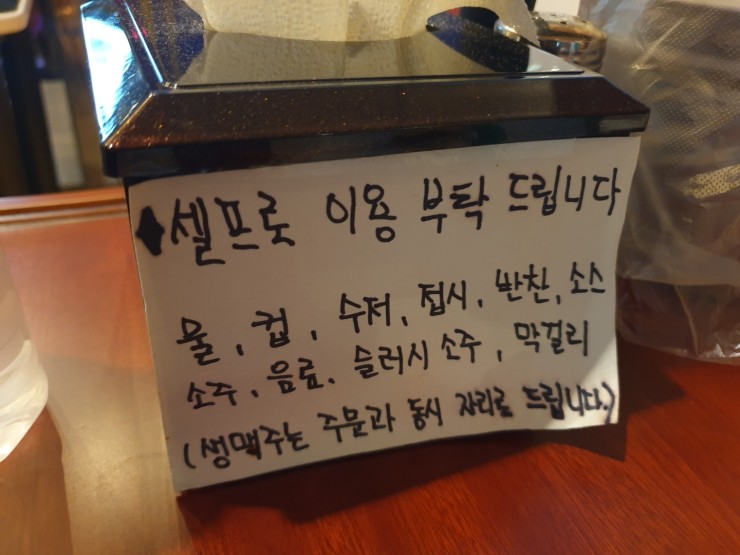 ◆셀프로 이용 부탁 드립니다
물, 컵, 수저, 접시, 반찬, 소스
소주, 음료, 슬러시 소주, 막걸리
(생맥주는 주문과 동시 자리로 드립니다.)